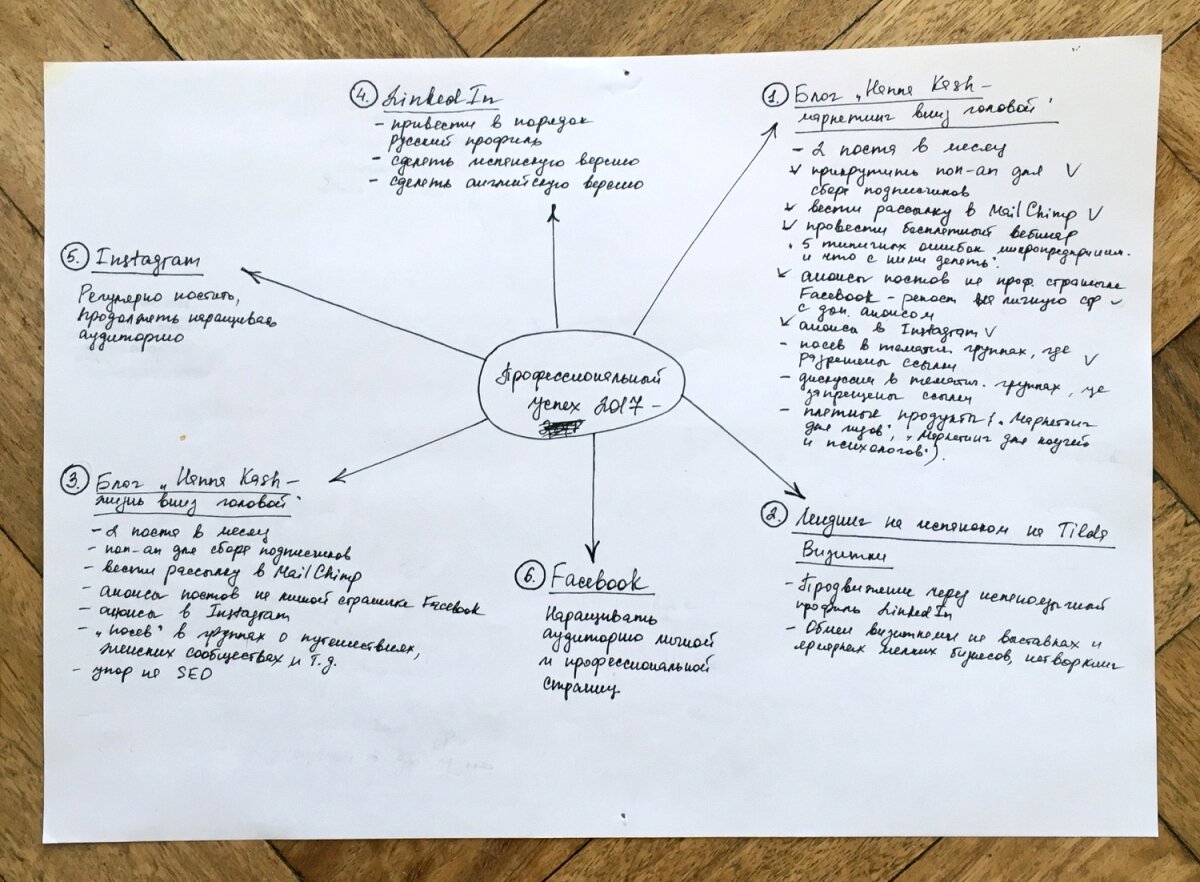 Профессиональный
Успех 2017 –
1. Блог „Hanna Kash –
маркетинг вниз головой"
– 2 поста в месяц
v прикрутить поп-ап для V
сбора подписчиков
v вести рассылку в MailChimp V
v провести бесплатный вебинар
„5 типичных ошибок микропредприним.
и что с ними делать".
v анонсы постов на проф. странице
Facebook – репост на личную стр v
с доп. анонсом
v анонсы в Instagram V
– посев в тематич. группах, где
разрешены ссылки V
– дискуссии в тематич. группах, где
запрещены ссылки
– платные продукты („Маркетинг
для гидов", „Маркетинг для коучей
и психологов").
2. Лендинг на испанском на Tilda
Визитки
– Продвижение через испаноязычной
профиль LinkedIn
– Обмен визитками на выставках и
ярмарках мелких бизнесов, нетворкинг
3. Блог „Hanna Kash –
жизнь вниз головой"
– 2 поста в месяц
– поп-ап для сбора подписчиков
– вести рассылку в MailChimp
– анонсы постов на личной странице Facebook
– анонсы в Instagram
– „посев" в группах о путешествиях,
женских сообществах и т.д.
– упор на SEO
4. LinkedIn
– привести в порядок
русский профиль
– сделать испанскую версию
– сделать английскую версию
5. Instagram
Регулярно постить,
продолжать наращивать
аудиторию
6. Facebook
Наращивать
аудиторию личной
и профессиональной
страниц